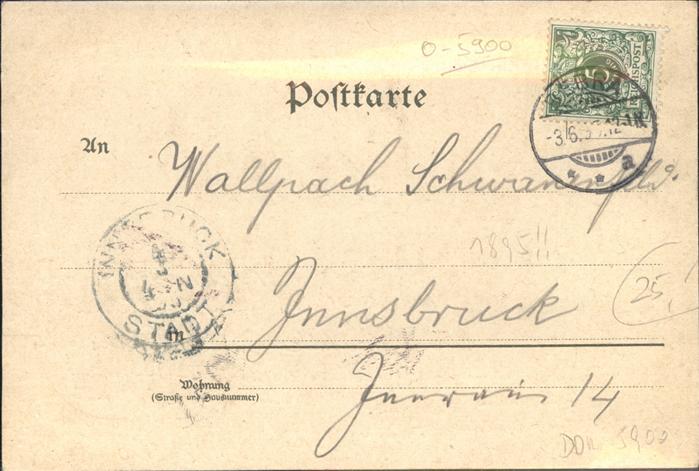 0-5900
Postkarte
REICHSPOST
-3.6.
a
An
Wallpach Schwanenfeld.
INNSBRUCK
STADT
1895!!
25,-
Innsbruck
in
Innrain 14
Wohnung
(Straße und Hausnummer)
5900